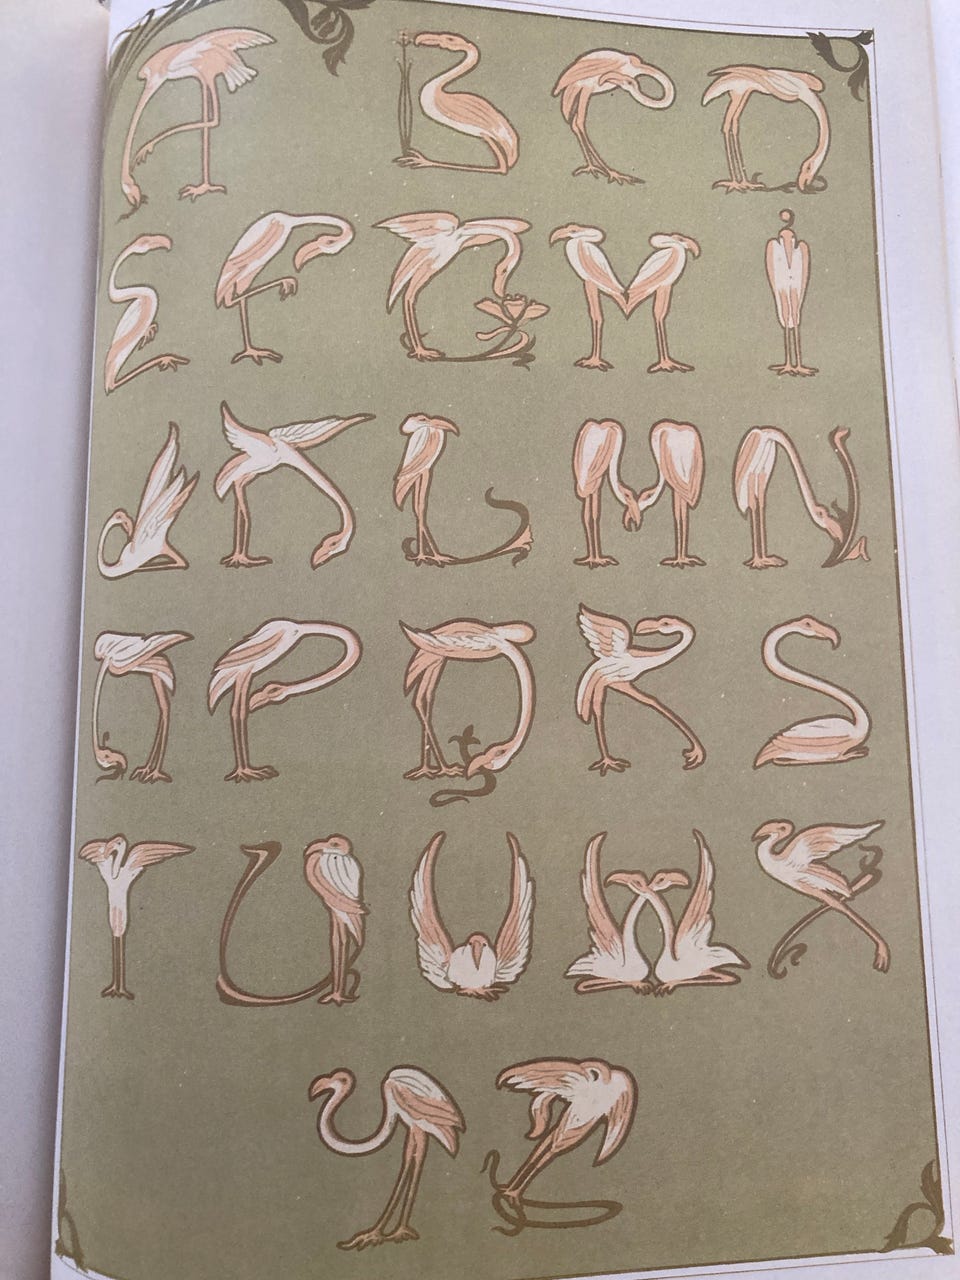 A B C D
E F G H I
J K L M N
O P Q R S
T U V W X
Y Z